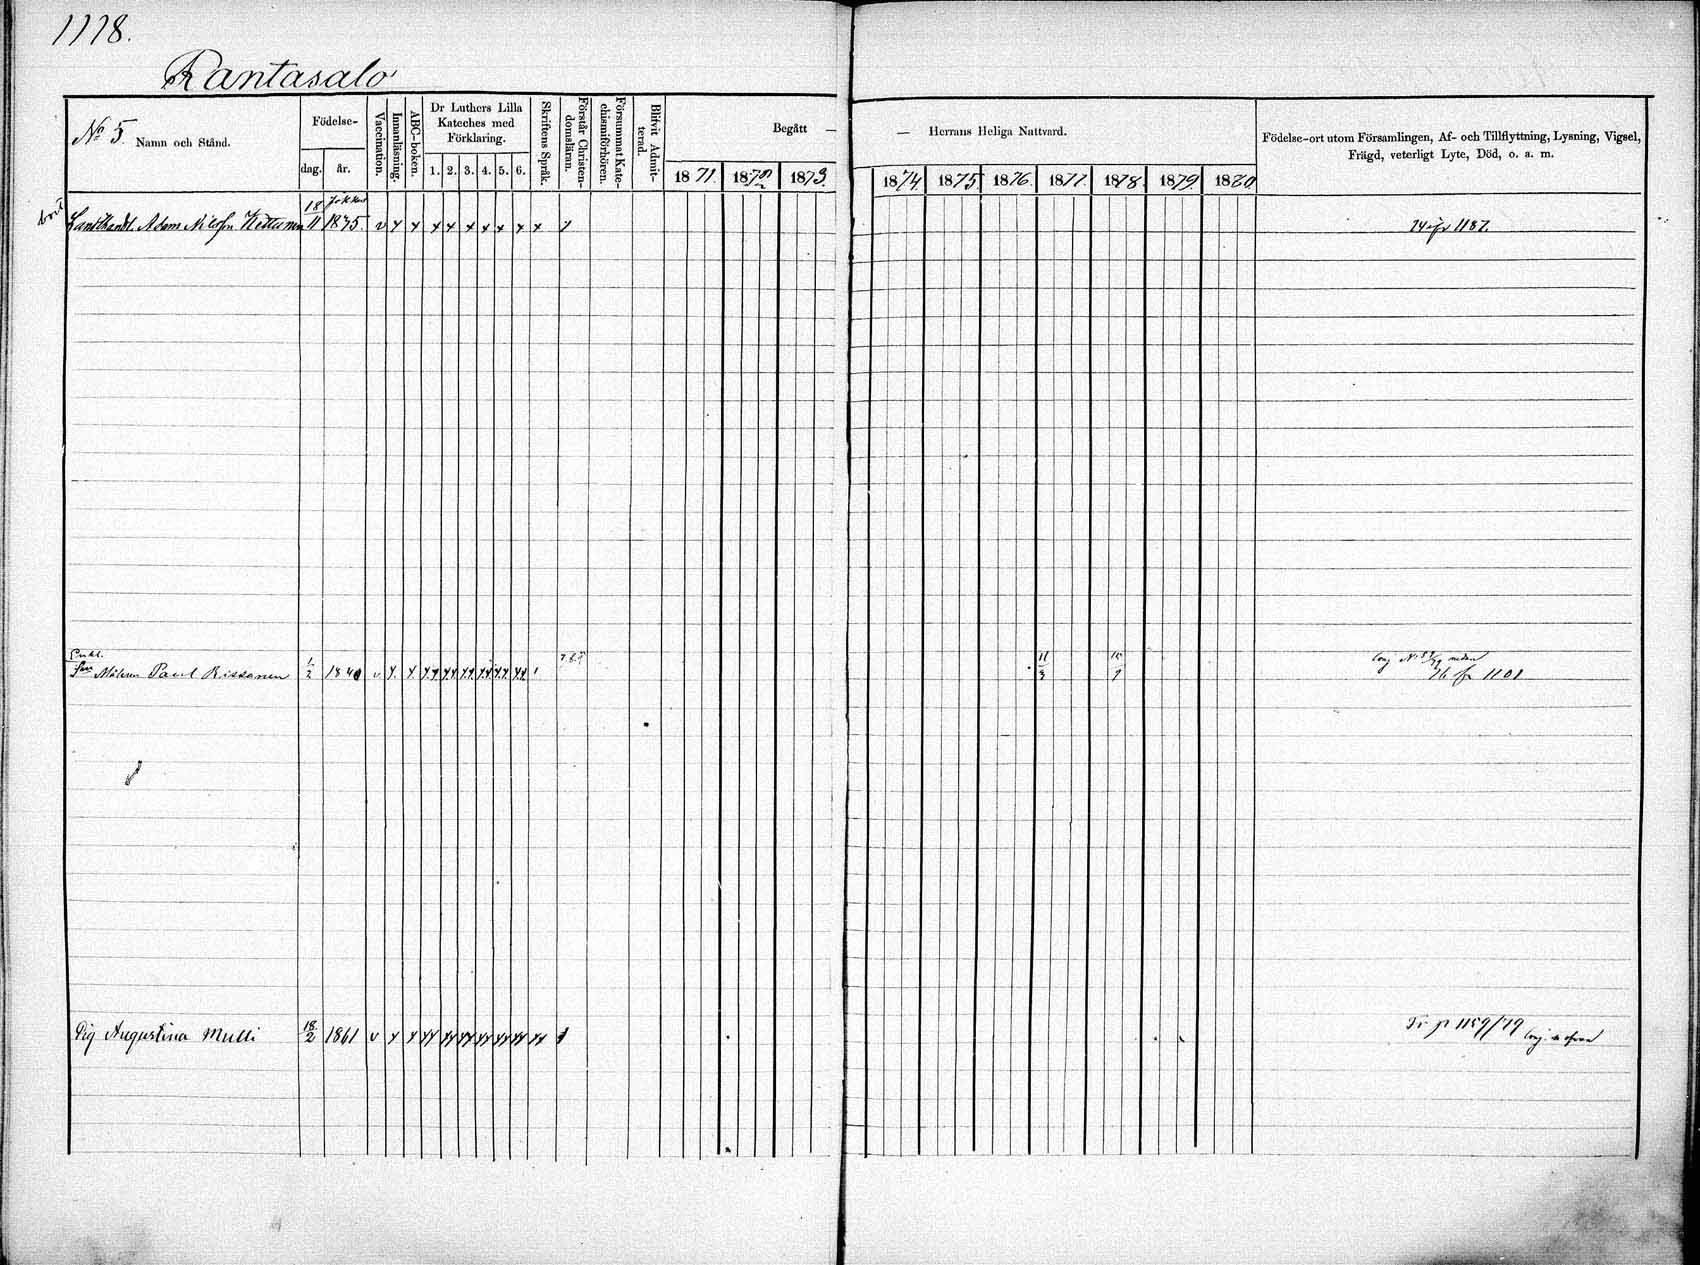 1118.
Rantasalo
No 5.
Namn och Stånd.
Födelse-
dag. år.
Vaccination.
Innanläsning.
ABC-boken.
Dr Luthers Lilla
Kateches med
Förklaring.
1. 2. 3. 4. 5. 6.
Skriftens Språk.
Förstår Christen-
domsläran.
Försummat Kate-
chismiförhören.
Blifvit Admit-
terad.
Begått —
1871. 1872 1873.
— Herrans Heliga Nattvard.
1874 1875 1876. 1877. 1878. 1879. 1880
Födelse-ort utom Församlingen, Af- och Tillflyttning, Lysning, Vigsel,
Frägd, veterligt Lyte, Död, o. a. m.
Landthandl. Adam Nilsson Kettunen 18/11 v
Paul Rissanen 1/2 1840 v
11/3
fr 1101
Pig Augustina Mulli 18/2 1861 v
Fr p 1159/79